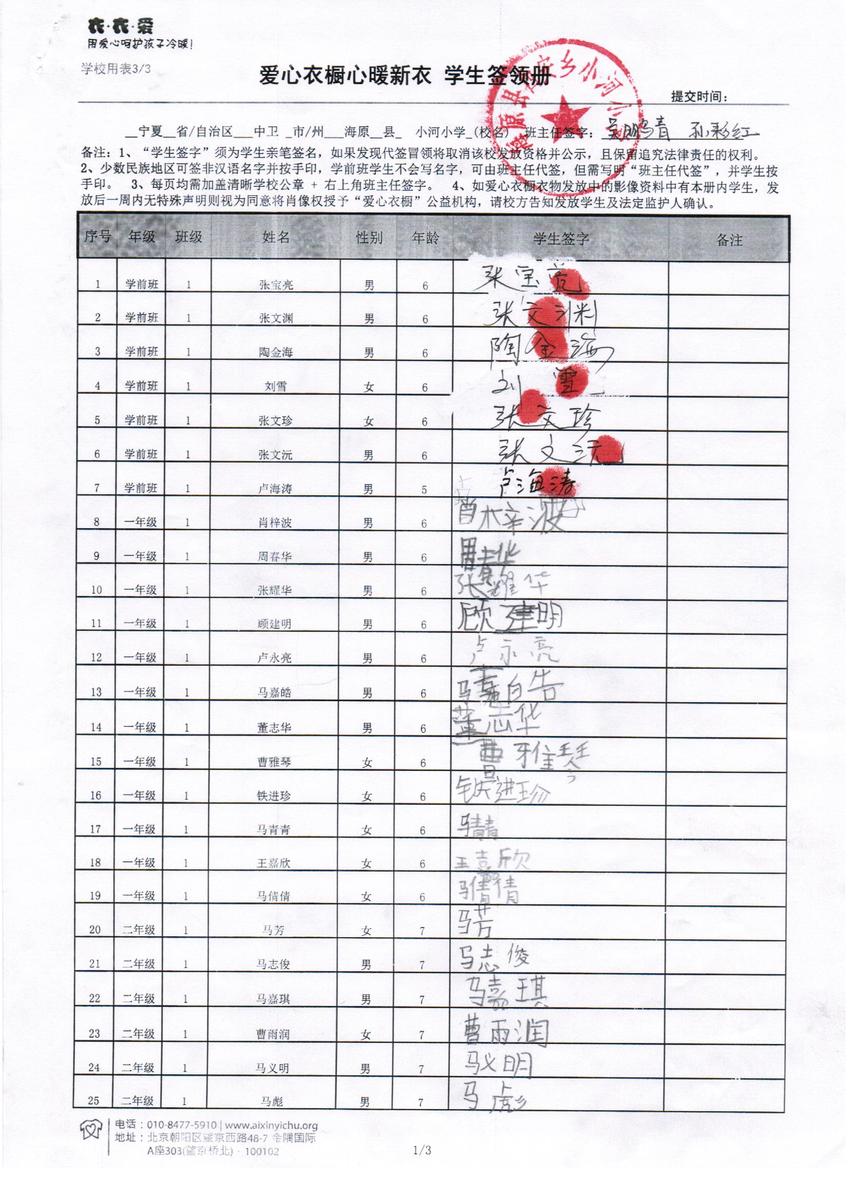 衣·衣·爱
用爱心呵护孩子冷暖!
学校用表3/3
爱心衣橱心暖新衣 学生签领册
提交时间:
__宁夏__省/自治区___中卫 _市/州___海原__县_ 小河小学_(校名) 班主任签字: 孙彩红
海原县 乡小河小学
备注:1、“学生签字”须为学生亲笔签名,如果发现代签冒领将取消该校发放资格并公示,且保留追究法律责任的权利。
2、少数民族地区可签非汉语名字并按手印,学前班学生不会写名字,可由班主任代签,但需写明“班主任代签”,并学生按
手印。 3、每页均需加盖清晰学校公章 + 右上角班主任签字。 4、如爱心衣橱衣物发放中的影像资料中有本册内学生,发
放后一周内无特殊声明则视为同意将肖像权授予“爱心衣橱”公益机构,请校方告知发放学生及法定监护人确认。
序号 年级 班级 姓名 性别 年龄 学生签字 备注
1 学前班 1 张宝亮 男 6 张宝亮
2 学前班 1 张文渊 男 6 张文渊
3 学前班 1 陶金海 男 6 陶金海
4 学前班 1 刘雪 女 6 刘雪
5 学前班 1 张文珍 女 6 张文珍
6 学前班 1 张文沅 男 6 张文沅
7 学前班 1 卢海涛 男 5 卢海涛
8 一年级 1 肖梓波 男 6 肖梓波
9 一年级 1 周春华 男 6 周春华
10 一年级 1 张耀华 男 6 张耀华
11 一年级 1 顾建明 男 6 顾建明
12 一年级 1 卢永亮 男 6 卢永亮
13 一年级 1 马嘉皓 男 6 马嘉皓
14 一年级 1 董志华 男 6 董志华
15 一年级 1 曹雅琴 女 6 曹雅琴
16 一年级 1 铁进珍 女 6 铁进珍
17 一年级 1 马青青 女 6 马青青
18 一年级 1 王嘉欣 女 6 王嘉欣
19 一年级 1 马倩倩 女 6 马倩倩
20 二年级 1 马芳 女 7 马芳
21 二年级 1 马志俊 男 7 马志俊
22 二年级 1 马嘉琪 男 7 马嘉琪
23 二年级 1 曹雨润 女 7 曹雨润
24 二年级 1 马义明 男 7 马义明
25 二年级 1 马彪 男 7 马彪
电话:010-8477-5910 | www.aixinyichu.org
地址:北京朝阳区望京西路48-7 金隅国际
A座303(望京桥北) · 100102
1/3